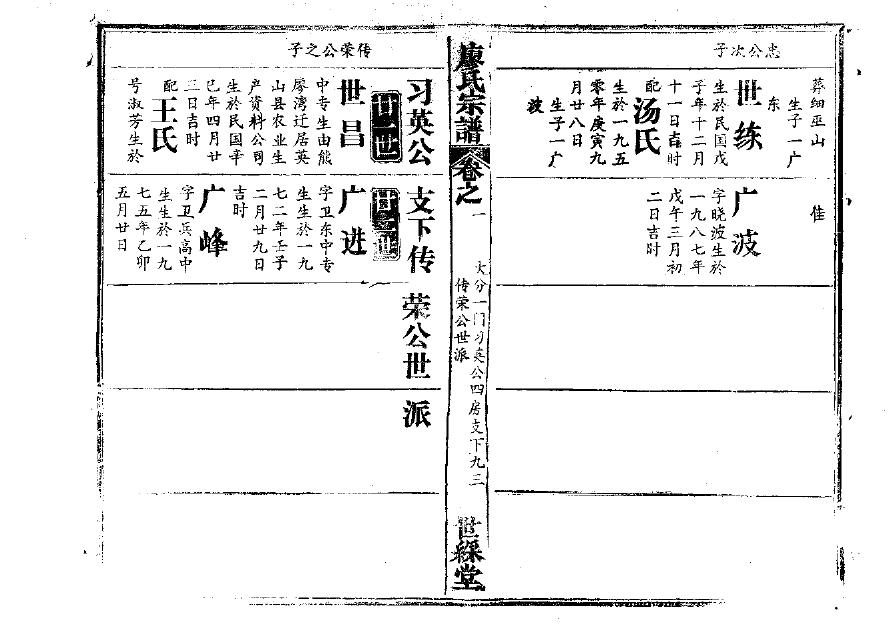 忠公次子
葬细巫山
生子一广
东
世练
生於民国戊
子年十二月
十一日吉时
配汤氏
生於一九五
零年庚寅九
月廿八日
生子一广
波
佳
广波
字晓波生於
一九八七年
戊午三月初
二日吉时
廖氏宗譜
卷之一
大分一门习英公四房支下九三
传荣公世派
世綵堂
习英公支下传荣公世派
传荣公之子
廿一世
世昌
中专生由熊
廖湾迁居英
山县农业生
产资料公司
生於民国辛
巳年四月廿
三日吉时
配王氏
号淑芳生於
廿二世
广进
字卫东中专
生生於一九
七二年壬子
二月廿九日
吉时
广峰
字卫兵高中
生生於一九
七五年乙卯
五月廿日